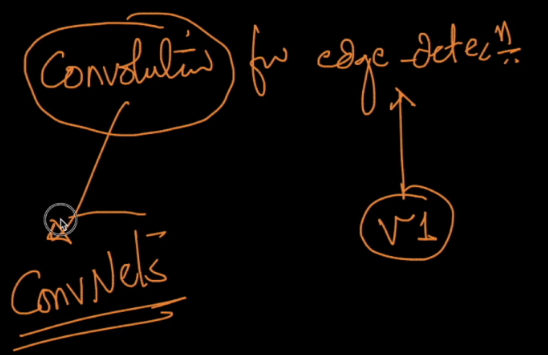 Convolution for edge detecⁿ
V1
ConvNets